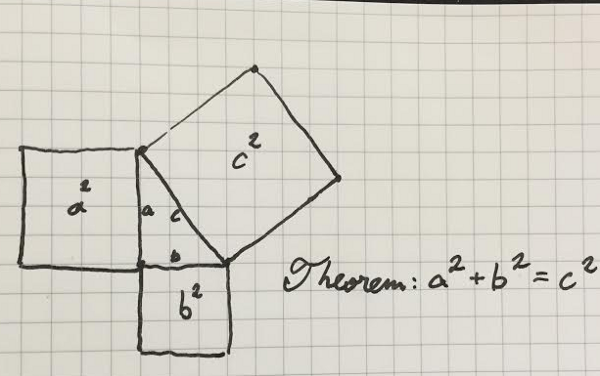 c²
a²
a
c
b
b²
Theorem: a² + b² = c²